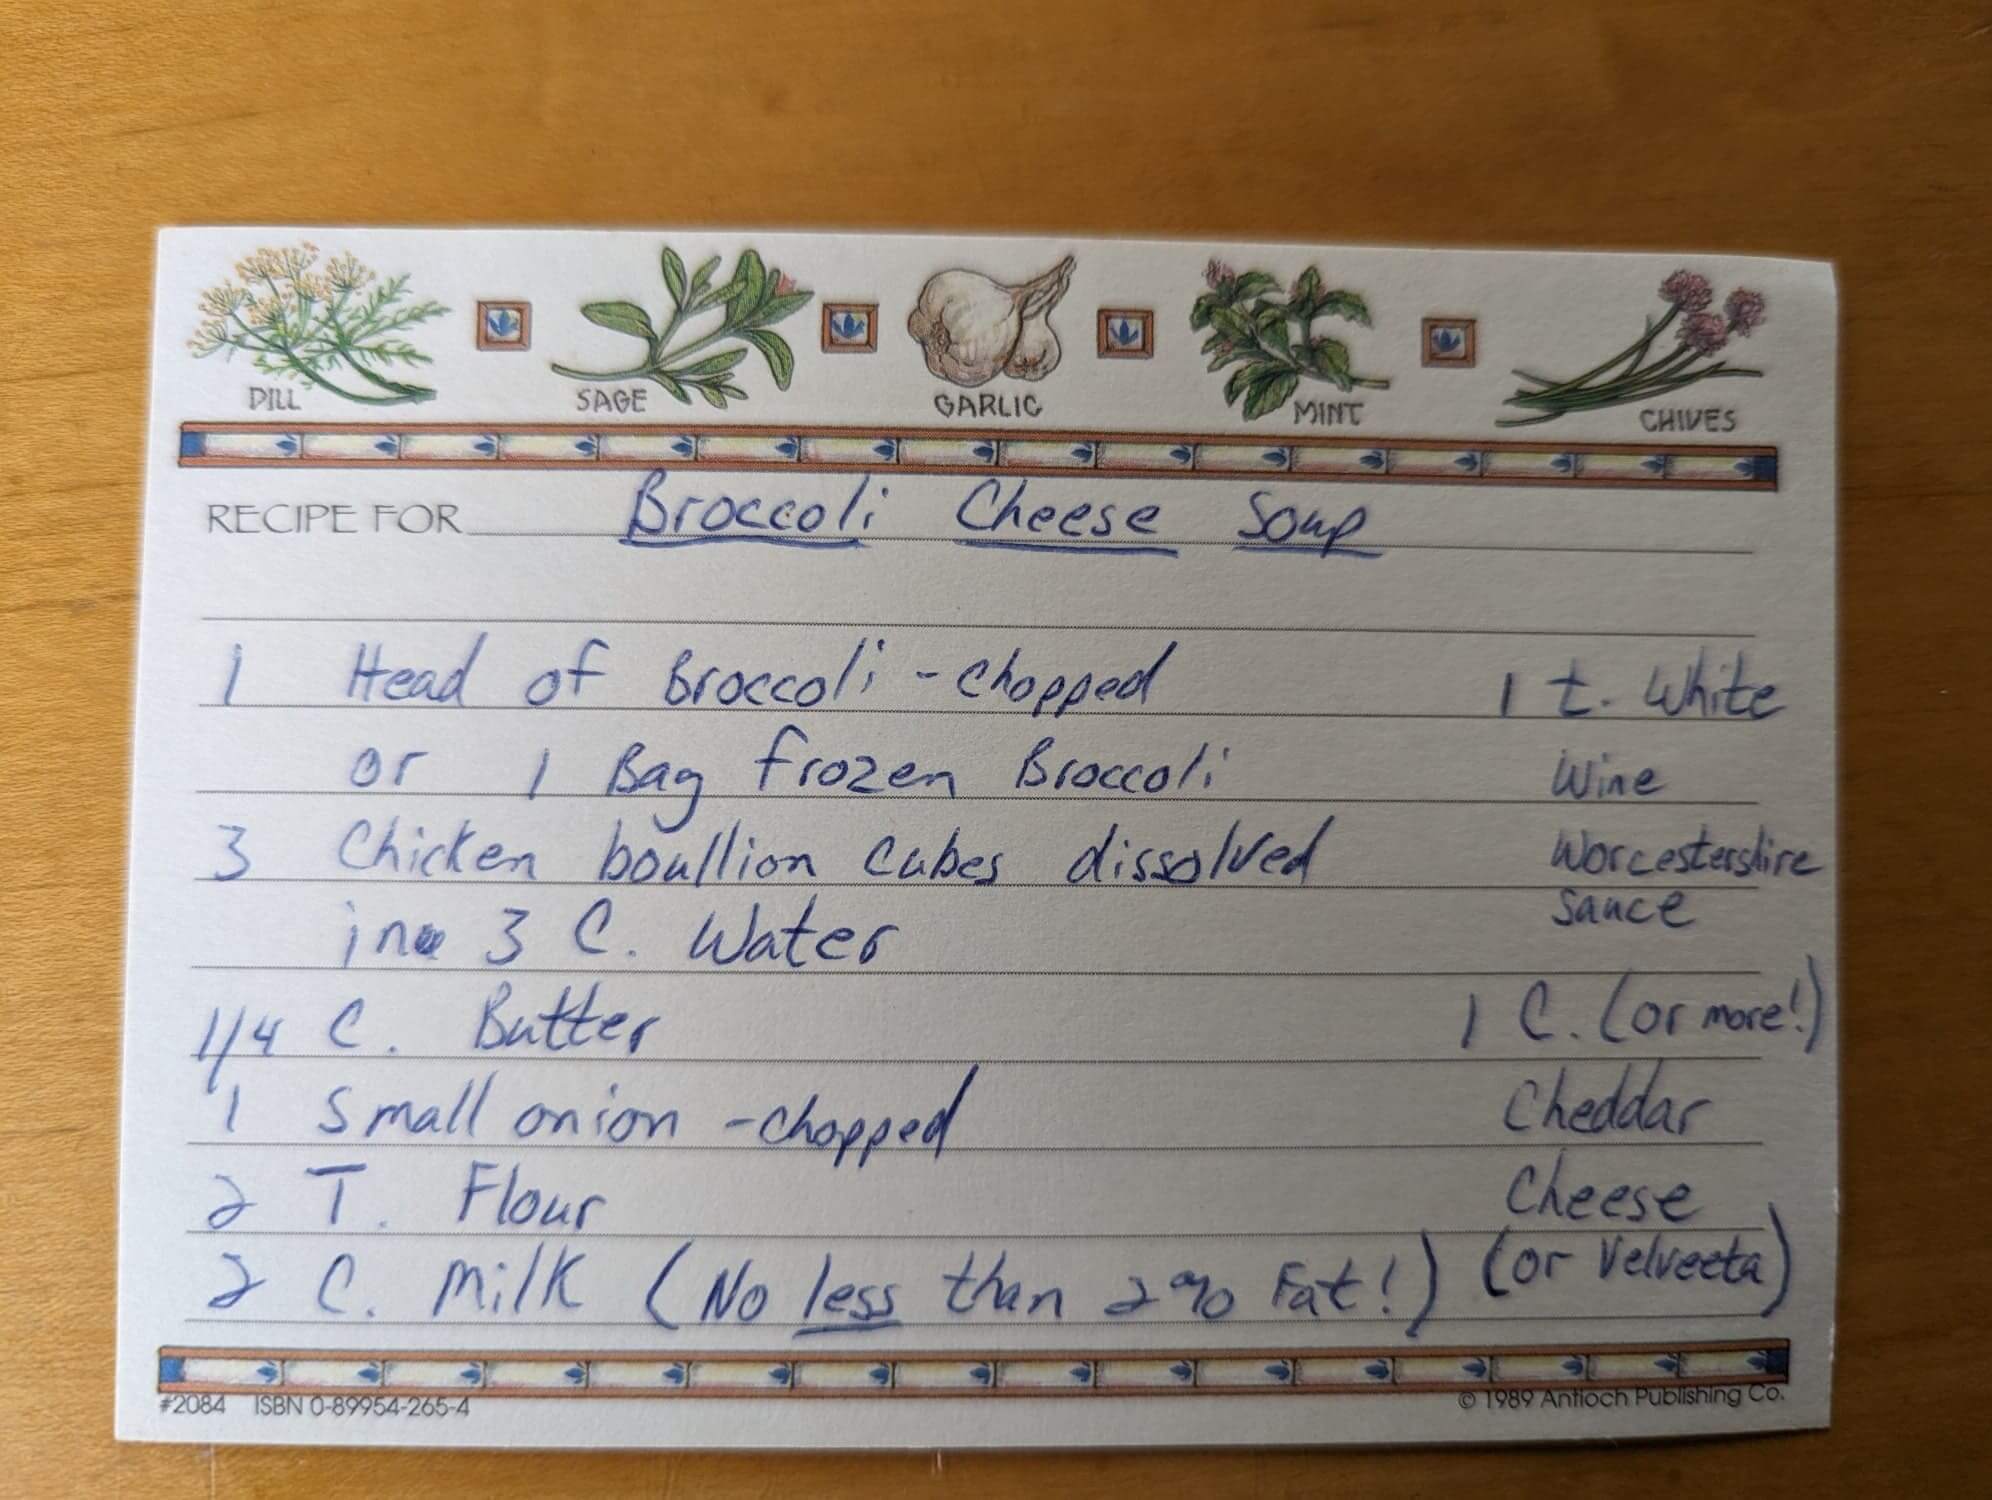 DILL SAGE GARLIC MINT CHIVES
RECIPE FOR Broccoli Cheese Soup
1 Head of Broccoli - chopped
or 1 Bag frozen Broccoli
3 Chicken boullion cubes dissolved
in 3 C. Water
1/4 C. Butter
1 Small onion - chopped
2 T. Flour
2 C. Milk (No less than 2% Fat!)
1 t. White
Wine
Worcestershire
Sauce
1 C. (or more!)
Cheddar
Cheese
(or Velveeta)
#2084 ISBN 0-89954-265-4
© 1989 Antioch Publishing Co.